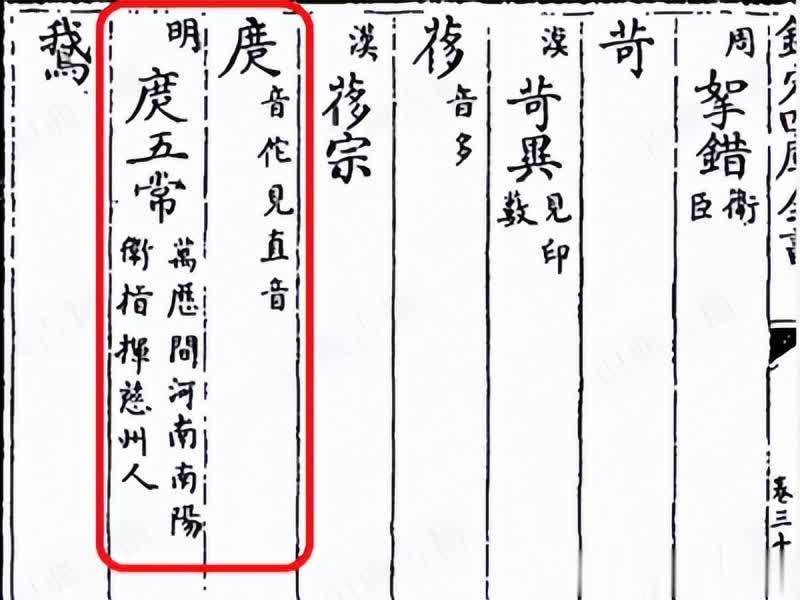 欽定四庫全書
卷三十
周 挐錯 衛
臣
苛
漢 苛異 見印
藪
茤 音多
漢 茤宗
庹 音佗見直音
明 庹五常 萬歷間河南南陽
衛指揮慈州人
鵝